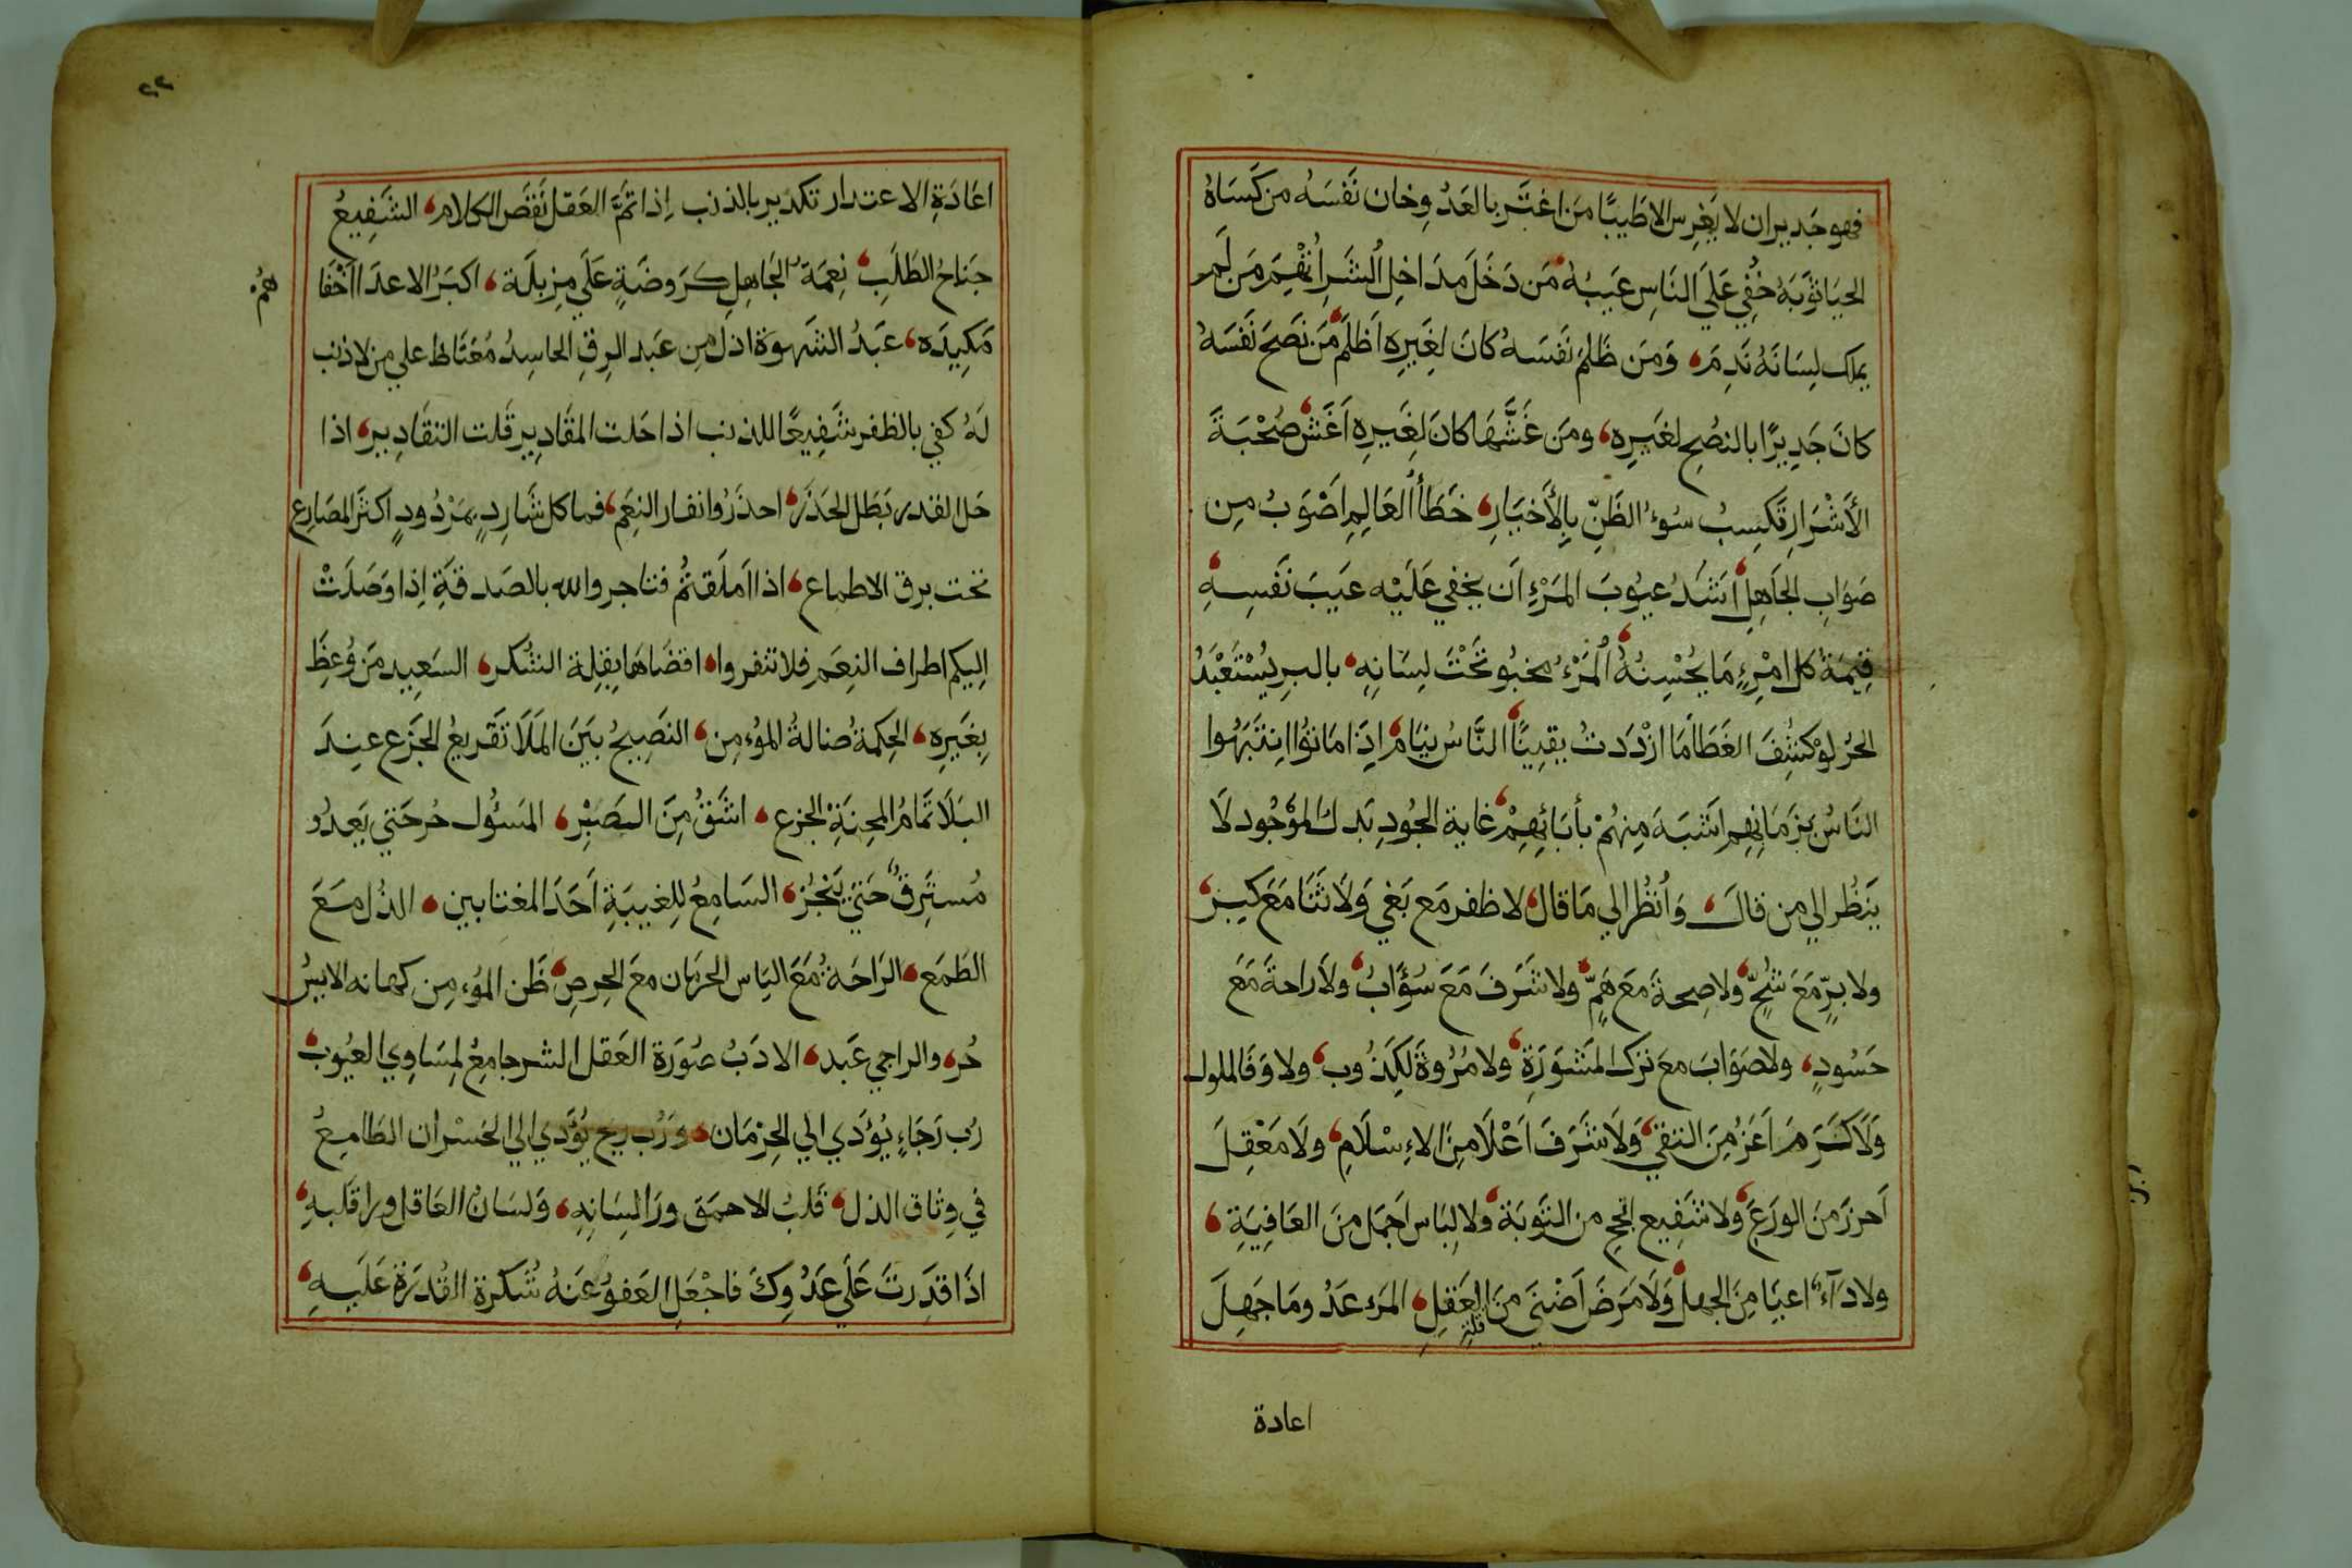 فهو جَدير ان لا يَغرِس الا طَيبًا مَن اغتَر بالعَدُوِ خان نَفْسَهُ من كَسَاهُ
الحيَا ثوَبَهُ خُفي عَلَي النَاسِ عَيبُهُ مَن دَخَلَ مدَاخِل اُلشَرِ اتُهِمَ مَن لَم
يملك لِسَانَهُ نَدِمَ وَمَن ظَلَمَ نَفسَهُ كانَ لِغَيرِهِ اَظلَم مَن نَصَحَ نَفَسَهُ
كانَ جَدِيرًا بالنصُحِ لغَيرِه ومَن غَشَّهَا كانَ لِغَيرِهِ اَغَش صُحْبَةَ
الأَشْرَارِ تَكسِبُ سُوءُ الظَنِّ بِالأَخيَارِ خَطَأُ العَالِمِ اَصْوَبُ مِن
صَوَابِ الجَاهِلِ اَشَدُ عيُوبَ المَرْءِ اَن يخفي عَلَيْه عيَبَ نَفسِهِ
قِيمَةُ كل امْرِءٍ مَا يُحْسِنُهُ اُلمَرْءُ مخبُو تَحْتَ لِسَانِهِ بالبرِ يُسْتَعْبَدُ
الحُر لوْ كُشِفَ الغَطَا مَا ازْدَدتُ يقيِنًا النَّاسُ نِيَام اِذَا مَاتوُا اِنتَبَهُوا
النَاسُ بِزَمَانِهِم اَشبَهَ مِنهُمْ بأَبَائِهِمْ غاية الجُودِ بَدلُ المَوْجُود لَا
يَنظُر الي مِن قالَ وَاُنظُر الي مَا قال لا ظفر مَع بَغي وَلَا ثنَا مَعَ كبِر
ولا برٍّ مَعَ شُحٍّ ولا صِحة مَع هَمٍّ ولا شَرَفَ مَعَ سُؤِابُ ولَا راحة مَعَ
حَسُودٍ ولَا صَوَابَ معَ تركِ المَشوَرَةِ ولا مُرُوةَ لكِذُوب ولا وَفَا لملول
وَلَا كَرَمَ اَعَزُ مِنَ التقي وَلَا شَرَفَ اَعْلَا مِنَ الاءِسْلَامِ ولَا مَعْقِلَ
اَحرَزَ مَنَ الورَعَ ولا شَفِيع انجح من التَوبَة ولا لِبَاس اَجمَل مِنَ العَافِيَةِ
ولا دَآءٌ اعيَا مِنَ الجهل وَلَا مَرَضَ اَضْنَي مِنَ العَقلِ المَرء عَدُو مَا جَهِلَ
قلة
اعادة
٢٢
اعَادَةِ الاعتدار تكدير بالذنب اِذا تمَّ العَقل نَقَص الكلام الشَفِيعُ
جنَاحُ الطَلَبِ نِعمَةُ الجَاهِلِ كَرَوضَةٍ عَلَي مِزبلَة اكبَرُ الاعدَا اَخْفَا
هُمْ
مَكِيدَه عبَدُ الشَهوَة اذل مِن عَبَد الرِقِ الحاسِدُ مُغتَاظ علي من لا ذنب
لَهُ كفي بالظفر شَفِيعًا للذنب اذا حَلت المقَادِير قَلت التقَادِير اذا
حَل القدر بَطَل الحَذَر احذَرُوا نفار النِعَم فما كل شَارِدٍ بمَرْدُودٍ اكثَر المصَارِع
تحت برق الاطماع اذا اَملَقتُم فتاجروا الله بالصَدقَةِ اِذا وَصَلَتْ
اليكم اطراف النِعَم فلا تنفروا اقصَاهَا بقِلة الشُكر السَعِيد مَن وُعِظَ
بِغَيرِه الحِكمةُ ضالةُ المؤمِن النصِيحُ بيَنَ المَلَا تقَريعُ الجَزَع عِندَ
البَلَا تَمَامُ المِحنَةِ الجَزع اشَقُ مِنَ الصَبْرِ المَسئُول حُر حَتي يَعدُو
مُستَرِقٌ حَتيَ يَنْجُز السَامِعُ لِلغيبَةِ اَحَدَ المغتابين الذُل مَعَ
الطَمَعِ الرَاحَةُ مَعَ اليَاس الحَرمَان مَعَ الحِرصِ ظَن المُؤمِن كهانه الاسِيرُ
حُر والراجي عَبد الادَبُ صُورَة العَقل الشر جامِعُ لِمسَاوِي العيُوب
رُب رَجَاءٍ يُؤَدي الي الحِرْمَان وَرُب ربح يُؤَدي الي الخَسْران الطَامِعُ
في وِثاق الذل قَلبُ الاحمَقِ وَرَا لِسَانِهِ وَلسَانُ العَاقل ورا قَلَبِهِ
اذَا قدَرتَ عَلَي عَدُوِكَ فاجْعَلِ العَفوُ عَنهُ شُكرة القُدرَة عَلَيهِ